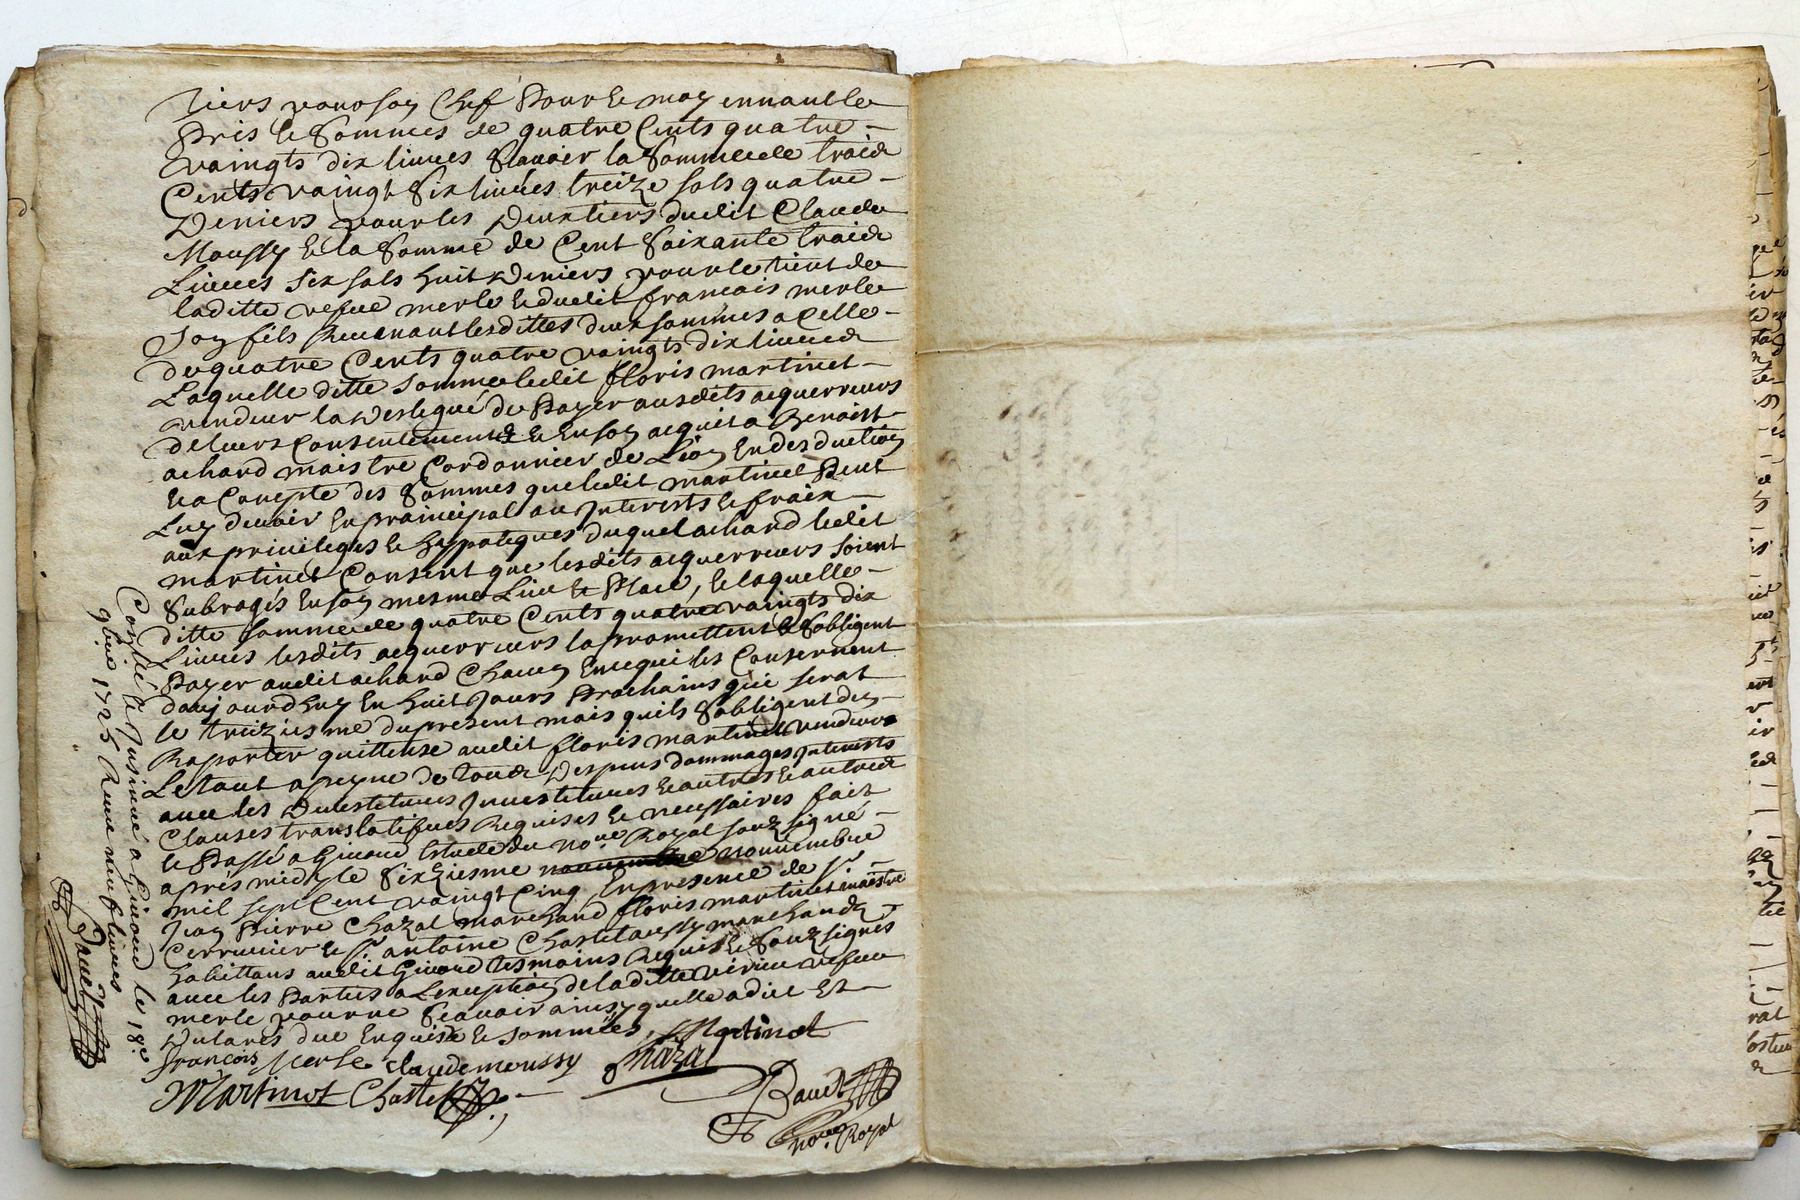 tiers pour son Chef Pour Et moyennant le
Pris Et Sommes de quatre Cents quatre –
vaingts dix livres Scauoir la Somme de trois
Cents vaingt Six livres treize sols quatre –
Deniers pour les Deux tiers dudit Claude
Moussy Et la Somme de Cent Soixante trois
Livres Six sols huit Deniers pour le tiers de
laditte vefue merle Et dudit francois merle
Son fils Reuenant lesdittes deux sommes a Celle –
de quatre Cents quatre vaingts dix livres
Laquelle ditte Somme ledit floris martinet –
vendeur la Deslegué de Payer ausdits acquerreurs
de leurs Consentements Et En son acquit a Benoist –
achard maistre Cordonnier de Lion En desduction
Et a Compte des Sommes que ledit martinet Peut
Luy deuoir En praincipal ou Interests Et fraix –
aux priuileges Et hyppoteques duquel achard ledit
martinet Consent que lesdits acquerreurs soient
Subrogés En son mesme Lieu Et Place, Et laquelle –
ditte Somme de quatre Cents quatre vaingts dix
Livres lesdits acquerreurs la promettent Et Sobligent
Payer audit achard Chacun En ce qui les Consernent
daujourdhuy En huit Jours Prochains qui serat
le treiziesme du present mois quils Sobligent den –
Raporter quittense audit floris martinet vendeur
Le tout a peyne de tous Despens dommages Interests
auec les Deuestitures Inuestitures Et autres Et autres
Clauses translatifues Requises Et necessaires fait
Et Passé a Giuord Estude du noire Royal souz signé –
apres midy le Sixziesme nouuembre
mil sept Cent vaingt Cinq En presence de sr
Jean Pierre Chazal marchand floris martinet maistre
Cerrurier Et sr antoine Chastelaussy marchands –
habittans audit Giuord tesmoins Requis Et Souz signés
auec les Parties a L'exception de laditte virieu vefue
merle pour ne Scauoir ainsy quelle a dit Et –
Declaré due Enquise Et Sommées.
Martinot
francois Merle claude moussy Chazal
Martinot Chastel
Bauet
noire Royal
Conterollé Et Insinué a Giuord le 18e
9bre 1725 Receu neuf livres
Bauet